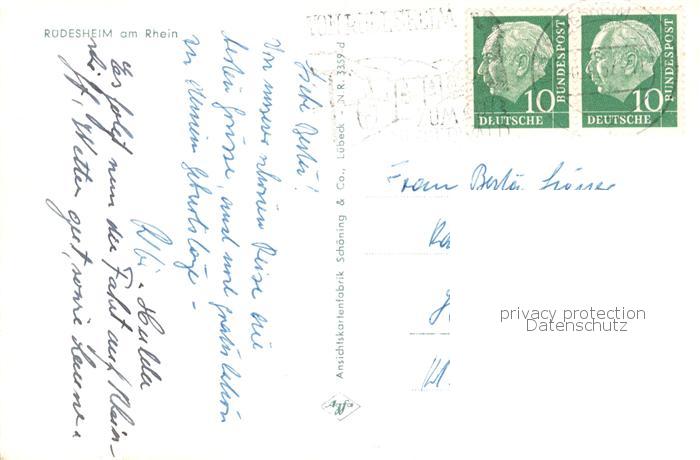 RÜDESHEIM am Rhein
Liebe Berta!
Von unserer schönen Reise die
besten Grüsse, und noch gratulation
zu Deinem Geburtstage -
Hulda
Es folgt nun die Fahrt auf Rhein-
schiff, Wetter gut, sowie Laune
Ansichtskartenfabrik Schöning & Co., Lübeck - N.R. 3359 d
10
DEUTSCHE
BUNDESPOST
10
DEUTSCHE
BUNDESPOST
Frau Berta
privacy protection
Datenschutz